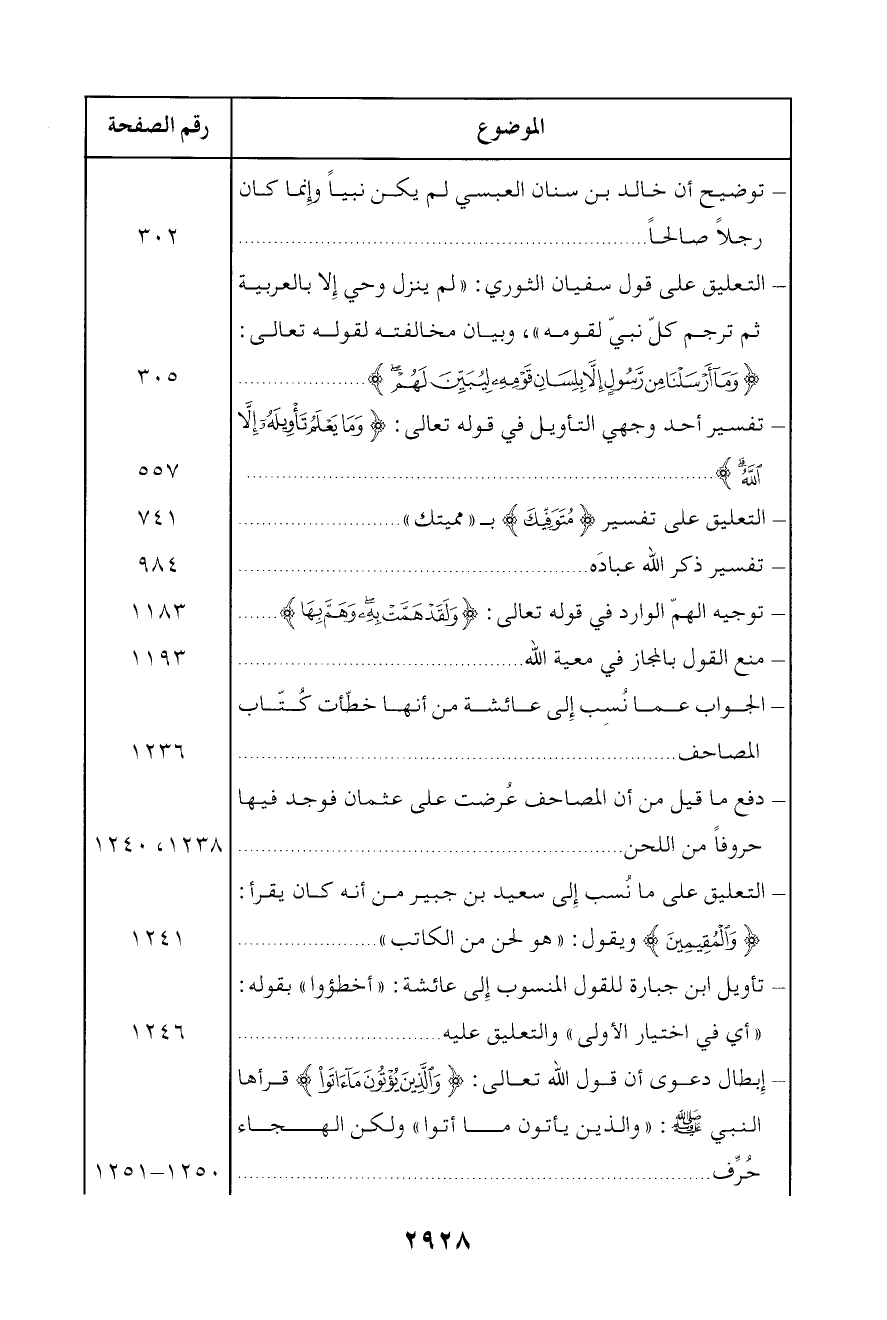 الموضوع رقم الصفحة
– توضيح أن خالد بن سنان العبسي لم يكن نبياً وإنما كان
رجلاً صالحاً ........ ٣٠٢
– التعليق على قول سفيان الثوري: «لم ينزل وحي إلا بالعربية
ثم ترجم كلّ نبيّ لقومه»، وبيان مخالفته لقوله تعالى:
﴿وَمَآ أَرْسَلْنَا مِن رَّسُولٍ إِلَّا بِلِسَانِ قَوْمِهِۦ لِيُبَيِّنَ لَهُمْ﴾ ........ ٣٠٥
– تفسير أحد وجهي التأويل في قوله تعالى: ﴿وَمَا يَعْلَمُ تَأْوِيلَهُۥٓ إِلَّا
ٱللَّهُ﴾ ........ ٥٥٧
– التعليق على تفسير ﴿مُتَوَفِّيكَ﴾ بـ «مميتك» ........ ٧٤١
– تفسير ذكر الله عبادَه ........ ٩٨٤
– توجيه الهمّ الوارد في قوله تعالى: ﴿وَلَقَدْ هَمَّتْ بِهِۦ وَهَمَّ بِهَا﴾ ........ ١١٨٣
– منع القول بالمجاز في معية الله ........ ١١٩٣
– الجواب عما نُسِب إلى عائشة من أنها خطّأت كُتّاب
المصاحف ........ ١٢٣٦
– دفع ما قيل من أن المصاحف عُرضت على عثمان فوجد فيها
حروفاً من اللحن ........ ١٢٣٨، ١٢٤٠
– التعليق على ما نُسب إلى سعيد بن جبير من أنه كان يقرأ:
﴿وَٱلْمُقِيمِينَ﴾ ويقول: «هو لحن من الكاتب» ........ ١٢٤١
– تأويل ابن جبارة للقول المنسوب إلى عائشة: «أخطؤوا» بقوله:
«أي في اختيار الأولى» والتعليق عليه ........ ١٢٤٦
– إبطال دعوى أن قول الله تعالى: ﴿وَٱلَّذِينَ يُؤْتُونَ مَآ ءَاتَوا۟﴾ قرأها
النبي ﷺ: «والذين يأتون ما أتوا» ولكن الهجاء
حُرِّف ........ ١٢٥٠–١٢٥١
٢٩٢٨